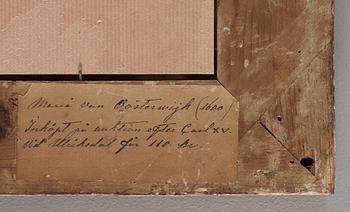 Maria van Oosterwijk (1600)
Inköpt på auktion efter Carl XV.
vid Ulriksdal för 110 kr.